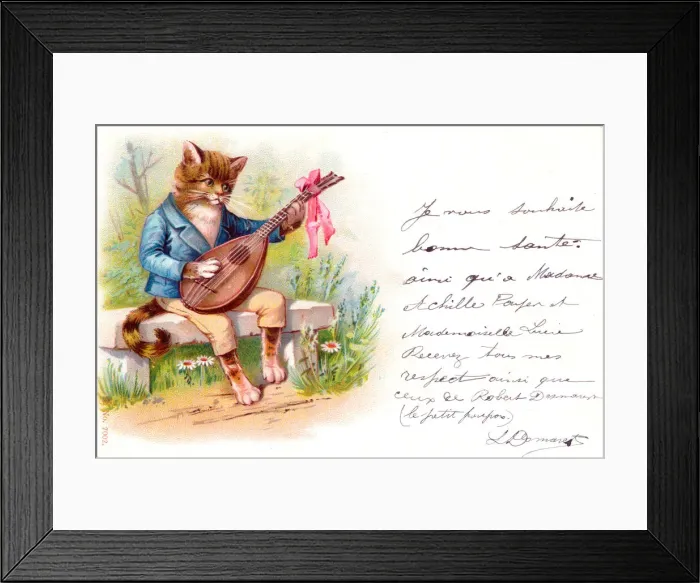 Je vous souhaite
bonne santé.
ainsi qu'a Madame
Achille et
Mademoiselle Lucie
Recevez tous mes
respect ainsi que
ceux de Robert
(le petit)
No. 7002.